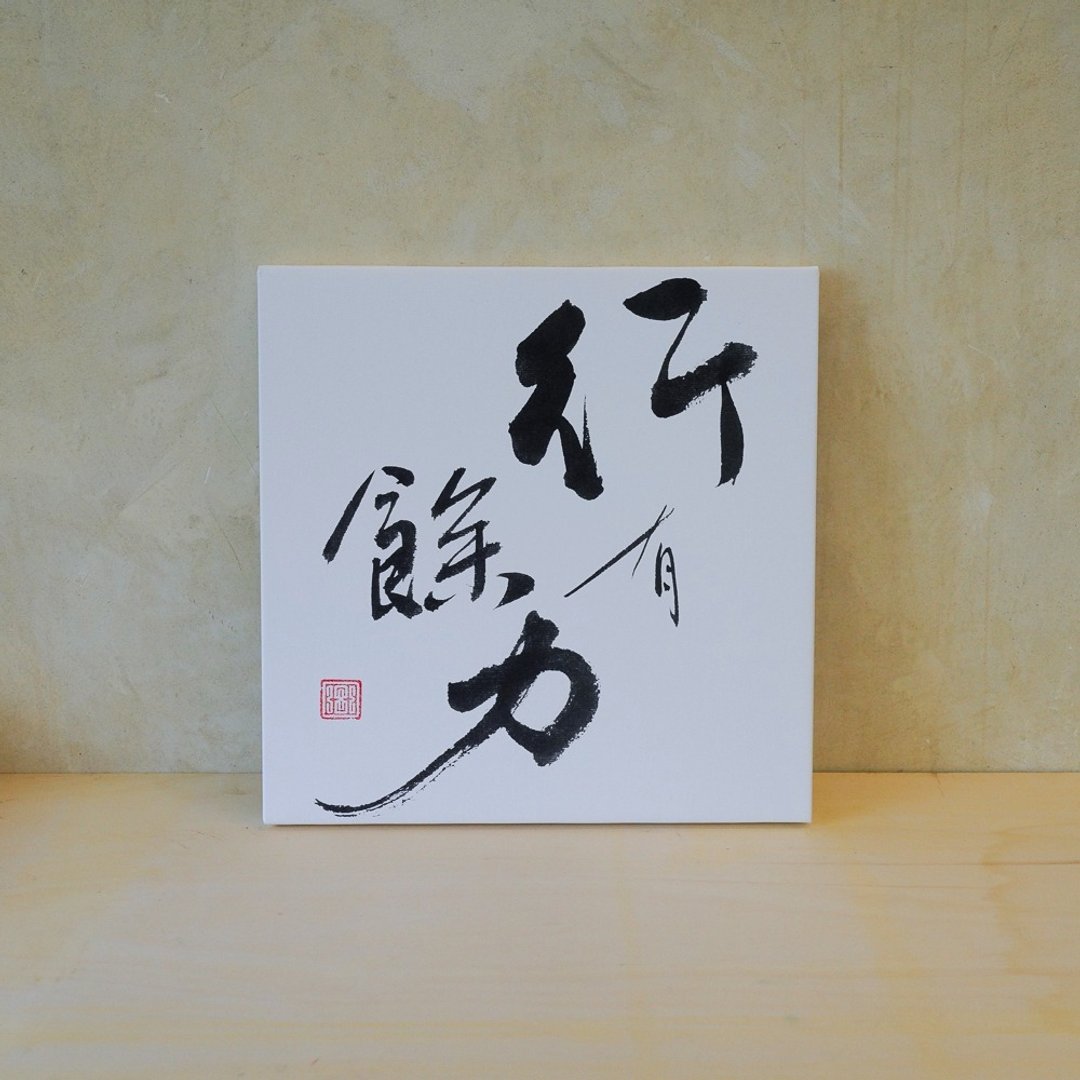 行有
餘力